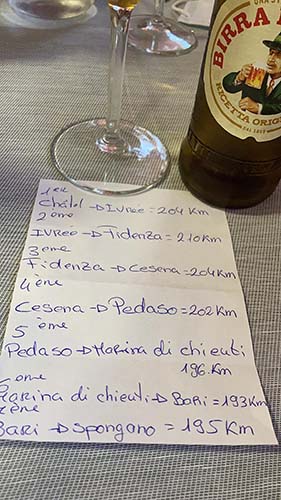 BIRRA
RICETTA ORIG
1er
Châtel → IVRée = 204 Km
2ème
IVRée → Fidenza = 210 Km
3ème
Fidenza → Cesena = 204 Km
4ème
Cesena → Pedaso = 202 Km
5ème
Pedaso → Marina di chieuti
196. Km
6ème
Marina di chieuti → BARi = 193 Km
7ème
Bari → Spongano = 195 Km